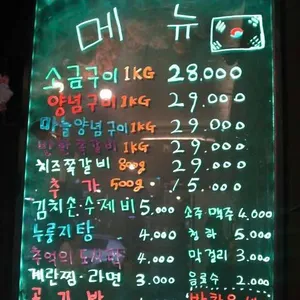 메뉴
소금구이 1KG 28.000
양념구이 1KG 29.000
마늘양념구이 1KG 29.000
1KG 29.000
치즈쪽갈비 800g 29.000
추가 500g 15.000
김치손수제비 5.000 소주·맥주 4.000
누룽지탕 4.000 청하 5.000
추억의 도시락 4.000 막걸리 3.000
계란찜·라면 3.000 음료수 2.000
공기밥